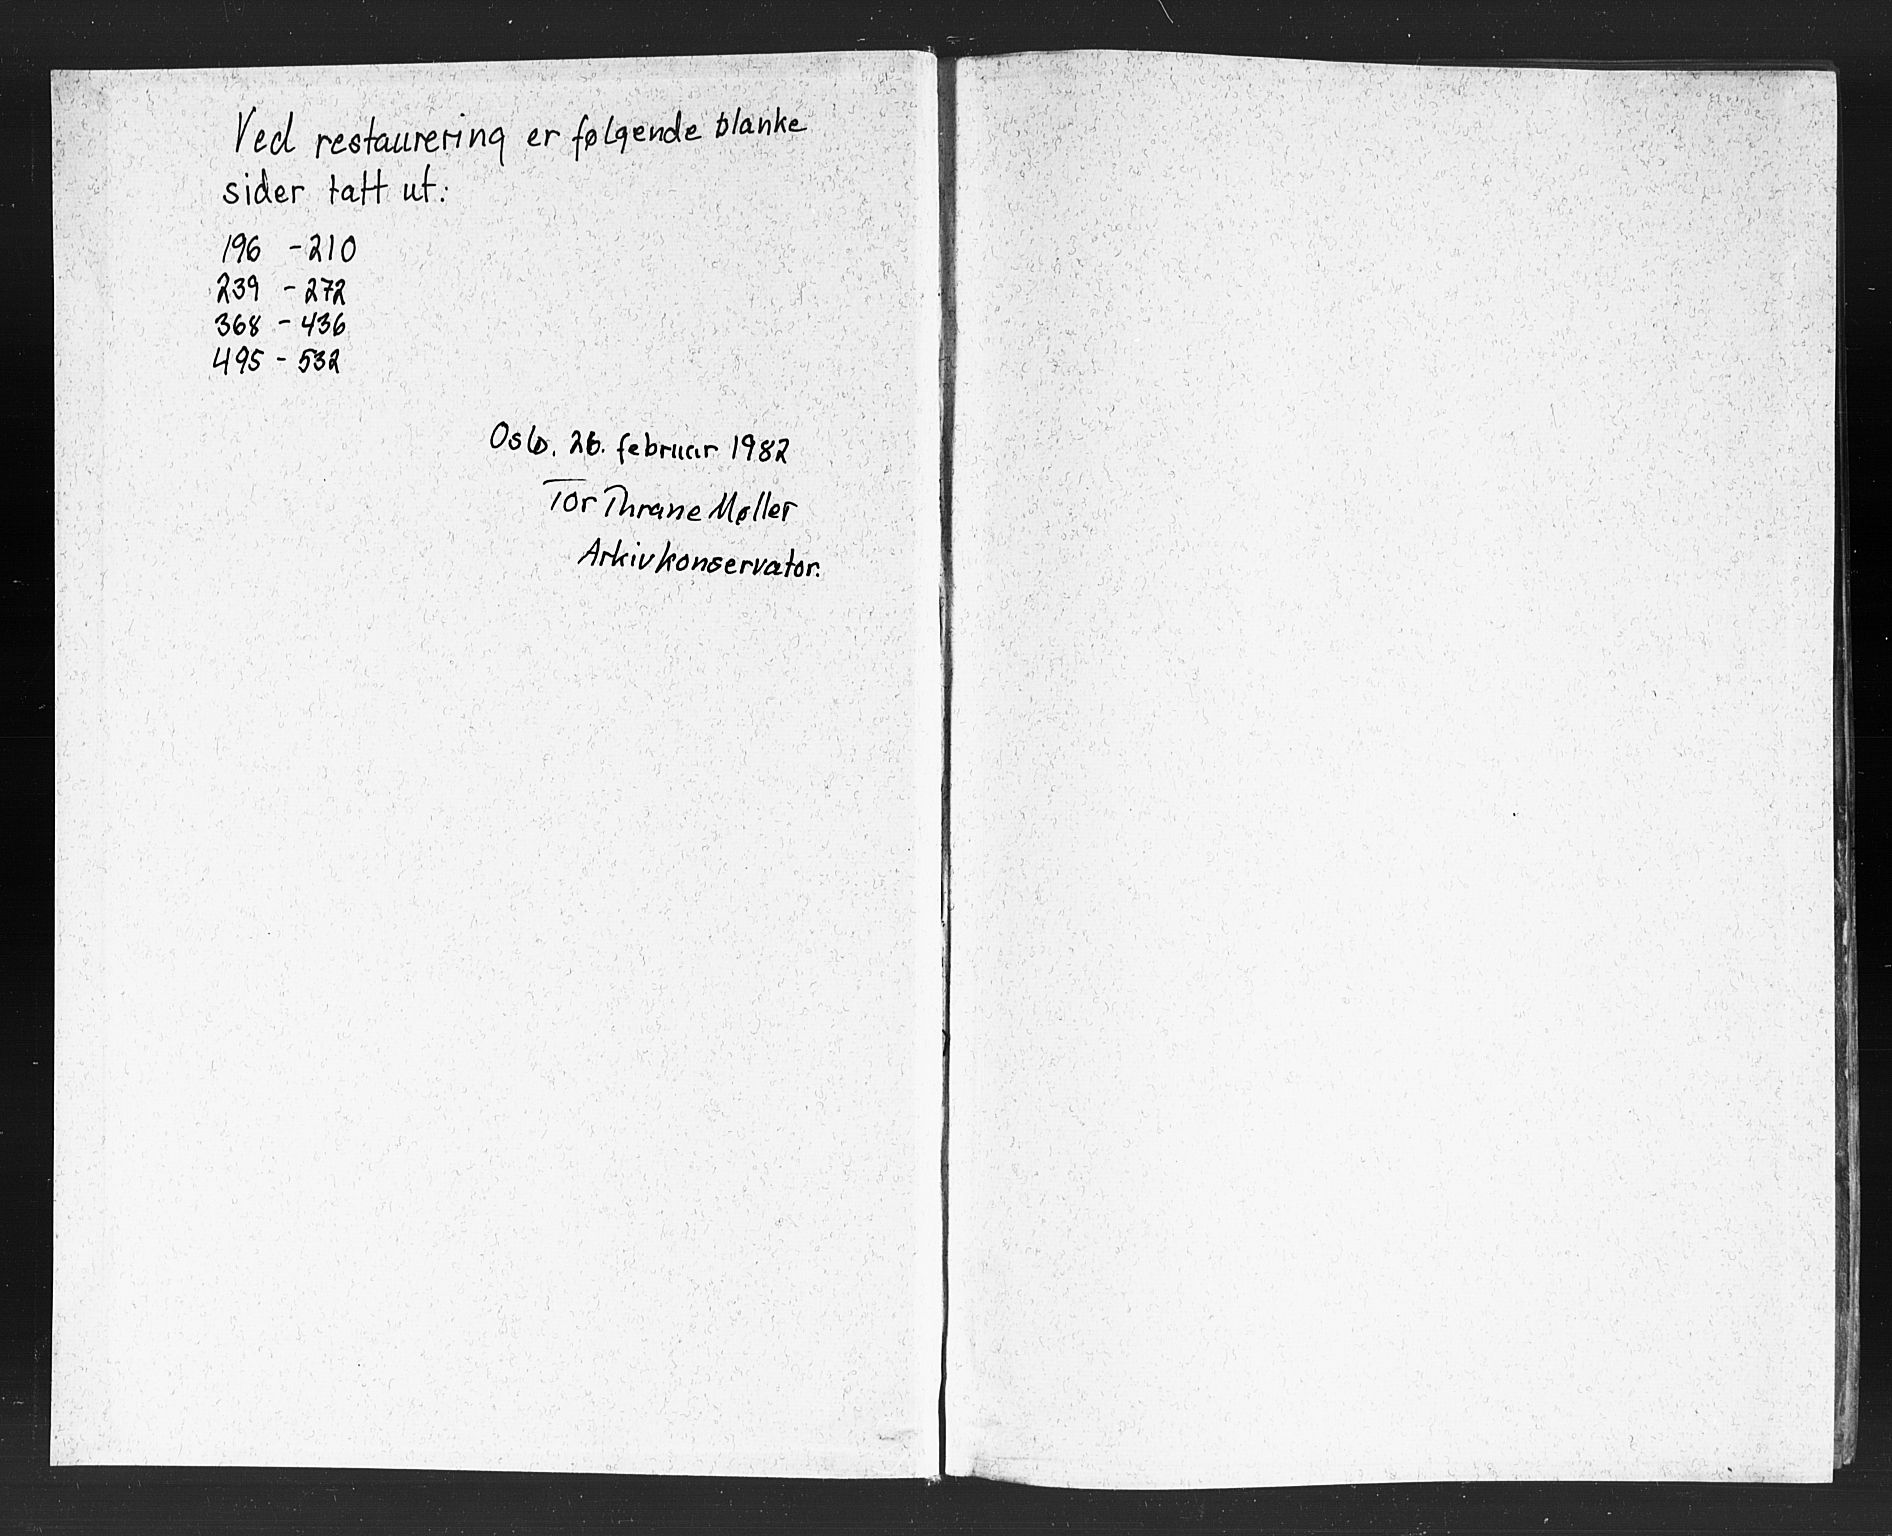 Ved restaurering er følgende blanke
sider tatt ut:
196 - 210
239 - 272
368 - 436
495 - 532
Oslo, 26. februar 1982
Tor Thrane Møller
Arkivkonservator.